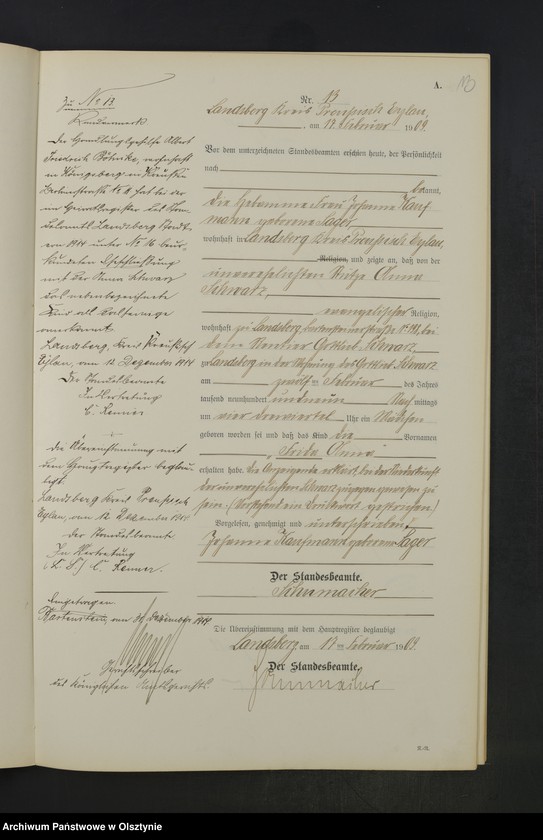 A.
Nr. 13
Landsberg Kreis Preussisch Eylau,
am 17. Februar 1909.
Vor dem unterzeichneten Standesbeamten erschien heute, der Persönlichkeit
nach
bekannt,
die Hebamme Frau Johanna Kauf-
mann geborene Sager
wohnhaft in Landsberg Kreis Preussisch Eylau,
Religion, und zeigte an, daß von der
unverehelichten Anna
Schwarz,
evangelischer Religion,
wohnhaft zu Landsberg, bei
dem Rentier Gottlieb Schwarz,
zu Landsberg in der Wohnung des Gottlieb Schwarz
am zwölften Februar des Jahres
tausend neunhundert und neun Nachmittags
um vier dreiviertel Uhr ein Mädchen
geboren worden sei und daß das Kind die Vornamen
Frida Anna
erhalten habe. Die Anzeigende erklärt, bei der Niederkunft
der unverehelichten Schwarz zugegen gewesen zu
sein. (Vorstehend ein Druckwort gestrichen)
Vorgelesen, genehmigt und unterschrieben
Johanna Kaufmann geborene Sager
Der Standesbeamte.
Schumacher
Die Übereinstimmung mit dem Hauptregister beglaubigt
Landsberg, am 17ten Februar 1909.
Der Standesbeamte.
Schumacher
Zu Nr 13
Randvermerk
Der Handlungsgehilfe Albert
Friedrich wohnhaft
in Königsberg in Preußen
hat bei der
im Heiratsregister des Stan-
desamts Landsberg Stadt
von 1914 unter Nr 16 beur-
kundeten Eheschließung
mit der Anna Schwarz
das nebenbezeichnete
Kind als
anerkannt.
Landsberg, Kreis Preußisch
Eylau, am 12. Dezember 1914
Der Standesbeamte
In Vertretung
C. Renner
Die Übereinstimmung mit
dem Hauptregister beglau-
bigt.
Landsberg Kreis Preussisch
Eylau, am 12. Dezember 1914
Der Standesbeamte
In Vertretung
(L. S.) C. Renner.
Eingetragen
Bartenstein, am Dezember 1914
Gerichtsschreiber
des Königlichen Amtsgerichts.
Archiwum Państwowe w Olsztynie